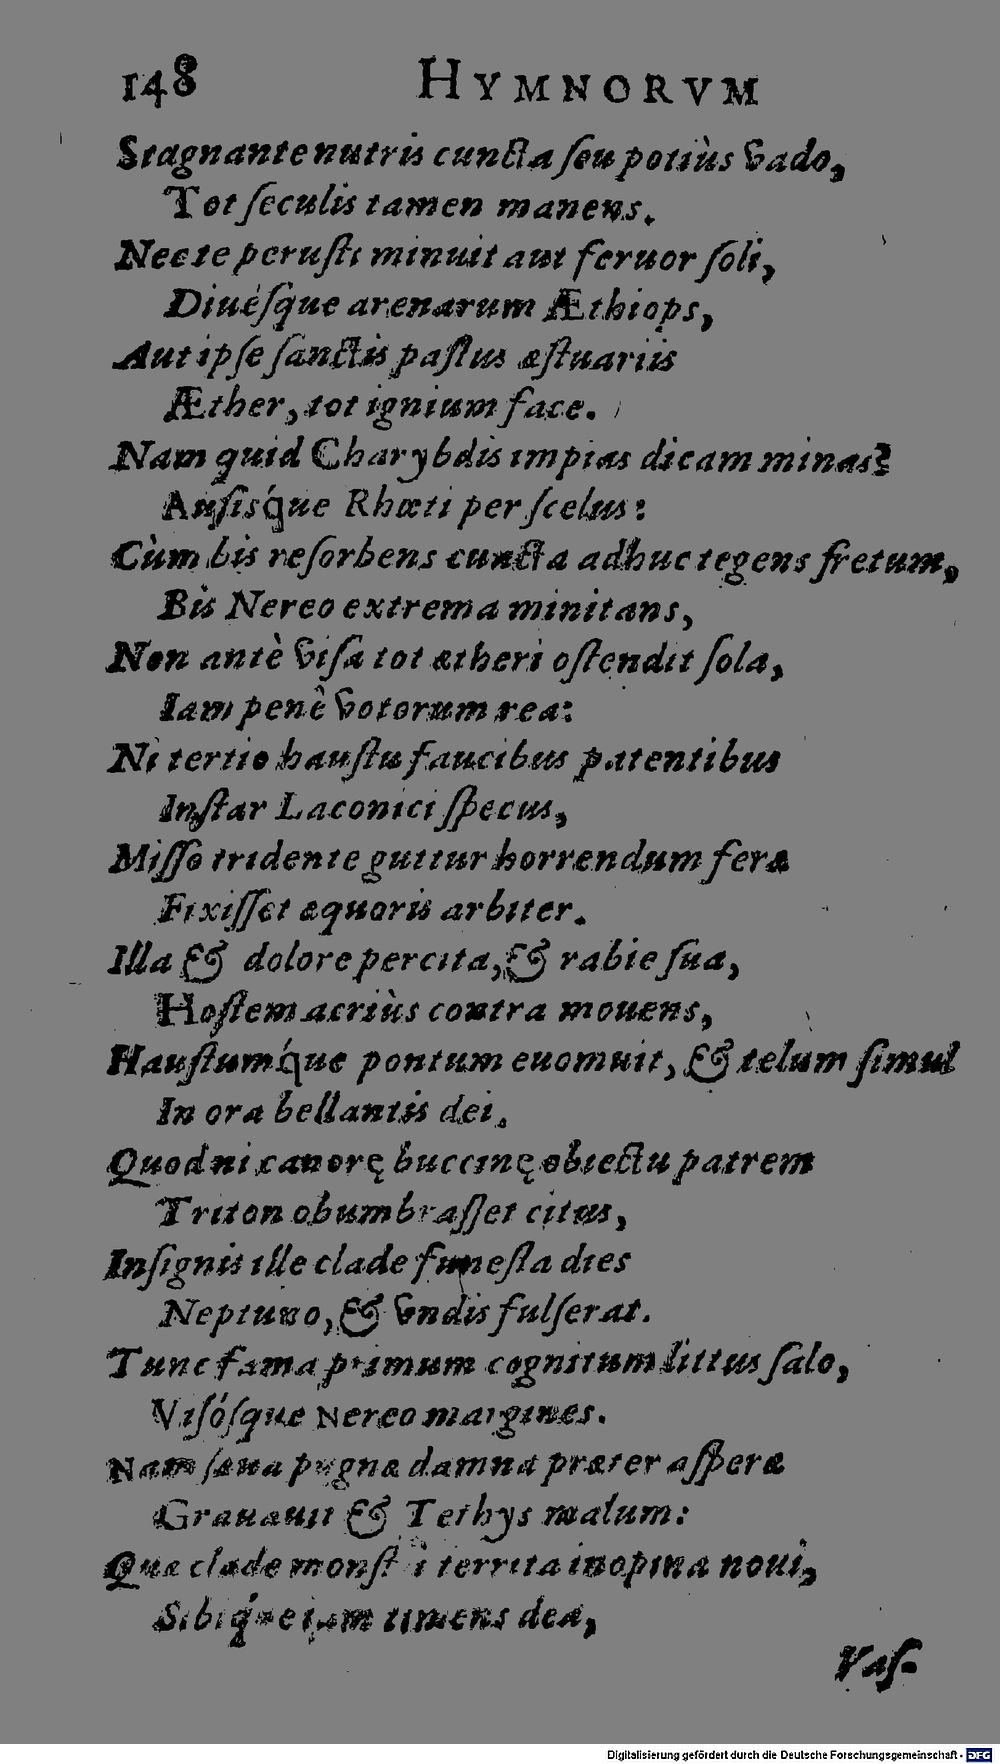 148 HYMNORVM
Stagnante nutris cuncta ſeu potiùs vado,
Tot ſeculis tamen manens.
Nec te peruſti minuit aut feruor ſoli,
Diuéſque arenarum Æthiops,
Aut ipſe ſanctis paſtus æſtuariis
Æther, tot ignium face.
Nam quid Charybdis impias dicam minas?
Auſisq́ue Rhœti per ſcelus:
Cùm bis reſorbens cuncta adhuc tegens fretum,
Bis Nereo extrema minitans,
Non antè viſa tot ætheri oſtendit ſola,
Iam penè votorum rea:
Ni tertio hauſtu faucibus patentibus
Inſtar Laconici ſpecus,
Miſſo tridente guttur horrendum feræ
Fixiſſet æquoris arbiter.
Illa & dolore percita, & rabie ſua,
Hoſtem acriùs contra mouens,
Hauſtumq́ue pontum euomuit, & telum ſimul
In ora bellantis dei.
Quod ni canorę buccinę obiectu patrem
Triton obumbraſſet citus,
Inſignis ille clade funeſta dies
Neptuno, & vndis fulſerat.
Tunc fama primum cognitum littus ſalo,
Viſóſque Nereo margines.
Nam ſæua pugnæ damna præter aſperæ
Grauauit & Tethys malum:
Quæ clade monſtri territa inopina noui,
Sibiq́ue iam timens dea,
Vaſ-
Digitalisierung gefördert durch die Deutsche Forschungsgemeinschaft - DFG